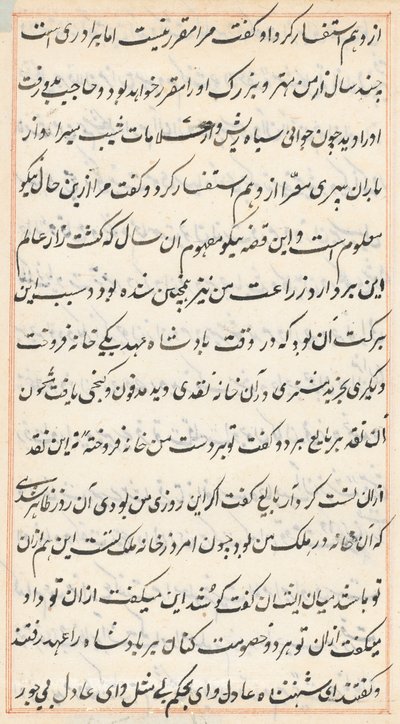 ازو هم استفسار کرد او گفت مرا مقرر نیست اما برادری است
چند سال از من مهتر و بزرگ او را مقرر خواهد بود و حاجب برفت
او را دید چون جوانی سیاه ریش و از علامات شیب مبرا و از
باران پیری معرا ازو هم استفسار کرد و گفت مرا ازین حال نیکو
معلوم است و این قصه نیکو مفهوم آن سال که کشت زار عالم
این بر دارد زراعت من نیز همچنین شده بود و سبب این
برکت آن بود که در وقت پادشاه مهد یکی خانه فروخت
و دیگری بخرید مشتری در آن خانه نقدی دید مدفون و گنجی یافت
آن نقد بر بایع برد و گفت تو بردست من خانه فروختهٔ نه این نقد
ازان تست کرد آر بایع گفت اگر این روزی من بودی آن روز ظاهر شدی
که آن خانه در ملک من بود چون امروز خانه ملک تست این هم ازان
تو باشد میان ایشان گفت گو شد این میگفت ازان تو و او
میگفت ازان تو هر دو خصومت کنان بر پادشاه را عهد رفتند
و گفتند ای شهنشاه عادل و ای حکیم بی مثل و ای عادل بی جور